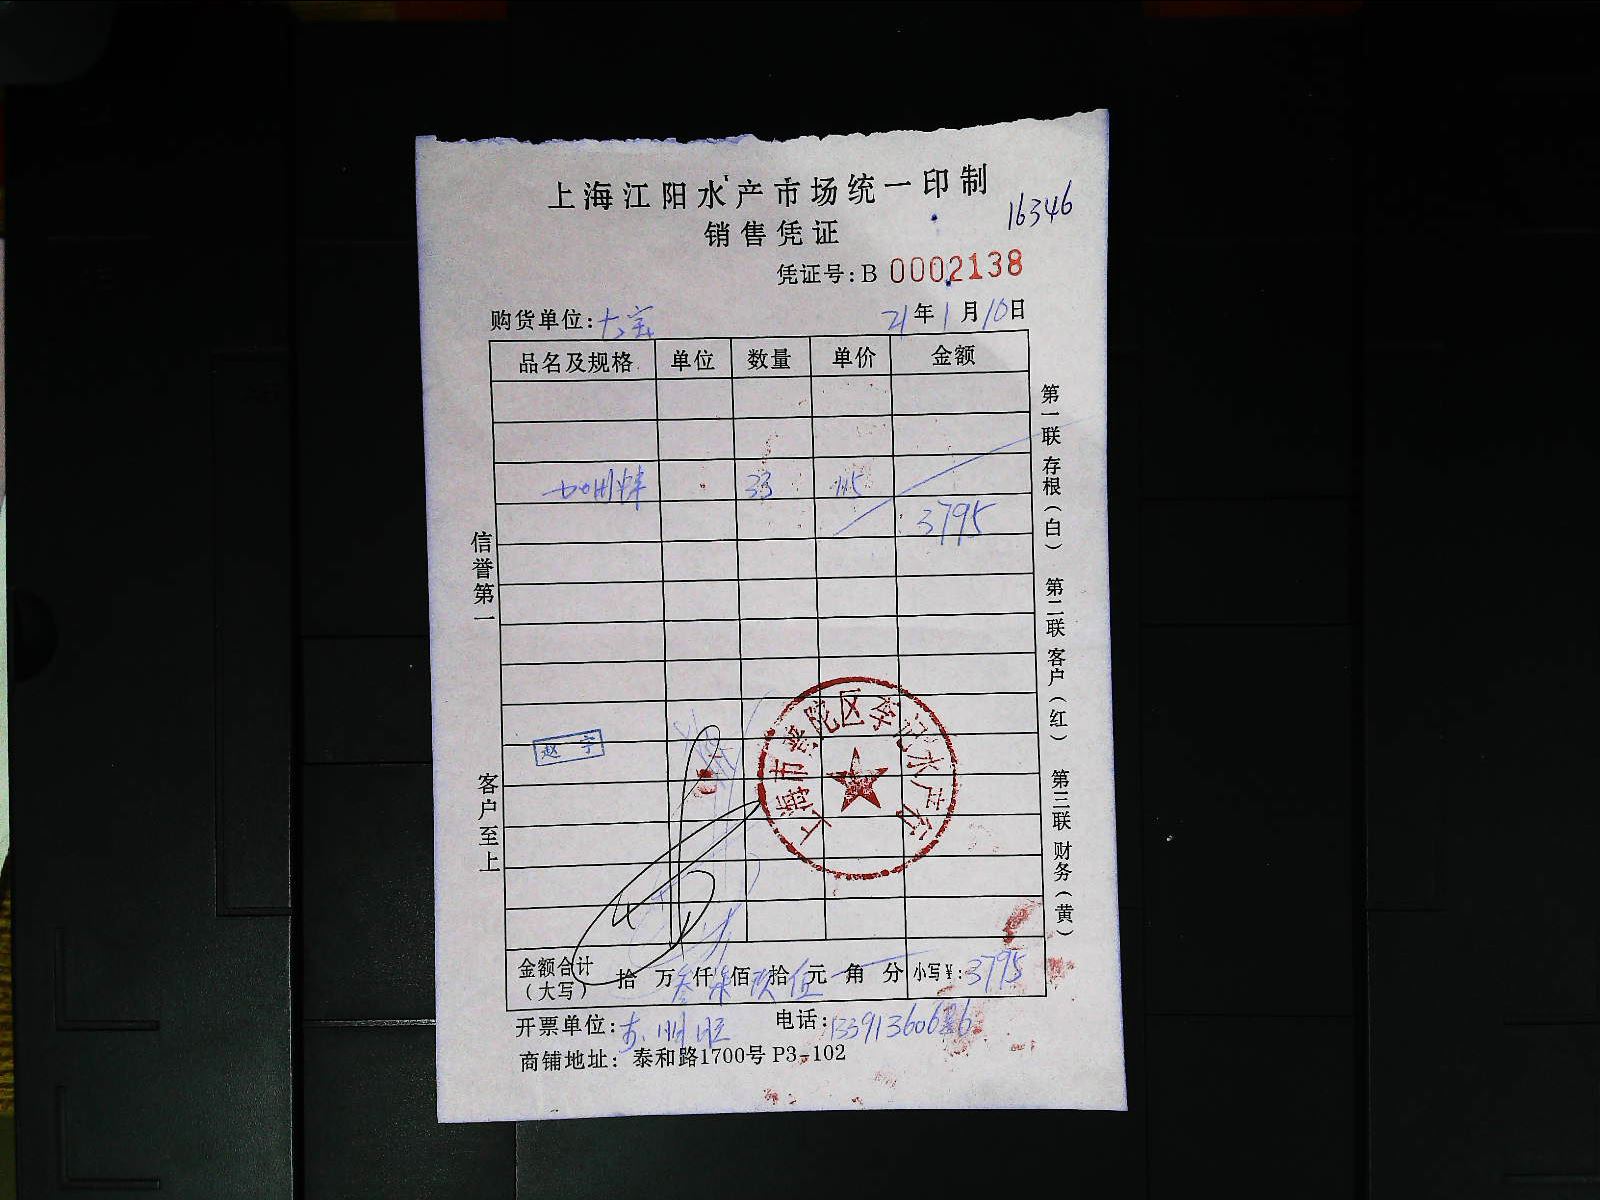 上海江阳水产市场统一印制
16346
销售凭证
凭证号：B 0002138
购货单位：大宝
21年1月10日
品名及规格 单位 数量 单价 金额
33 115
3795
信誉第一
客户至上
第一联 存根（白） 第二联 客户（红） 第三联 财务（黄）
赵宇
上海市普陀区李记水产行
金额合计（大写） 拾 万叁仟柒佰玖拾伍元 角 分 小写¥：3795
开票单位：
电话：
商铺地址：泰和路1700号 P3-102